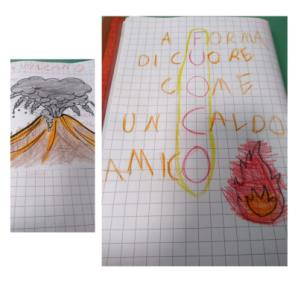 A FORMA
DI CUORE
COME
UN CALDO
AMICO